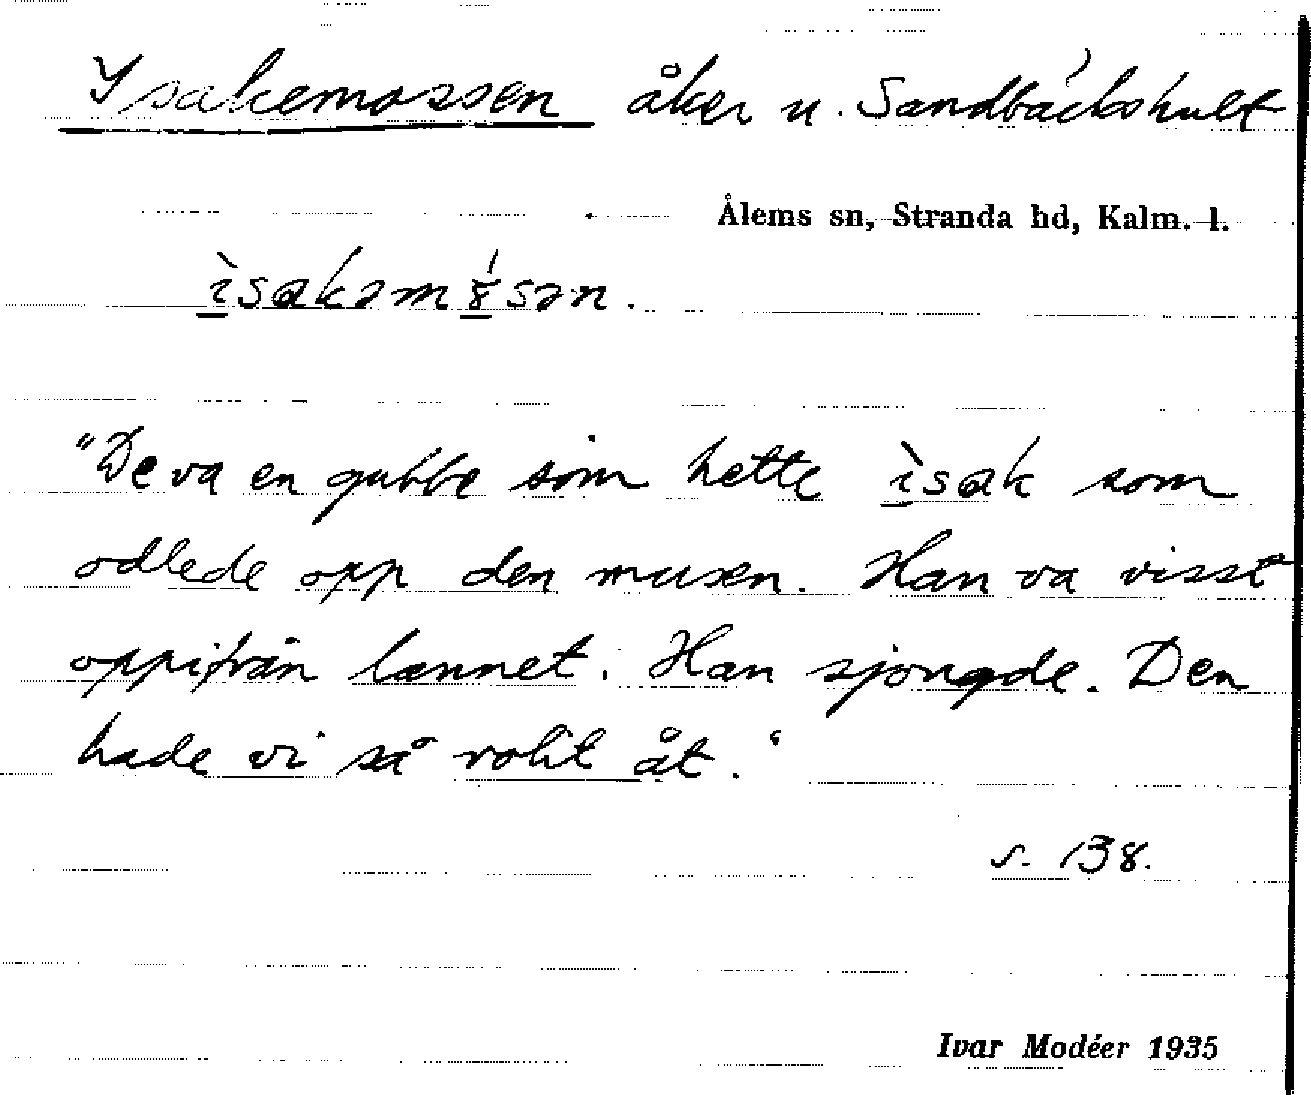 Isakemossen åker u. Sandbäckshult
Ålems sn, Stranda hd, Kalm. l.
ìsakəm8́sən.
"De va en gubbe som hette ìsak som
odlede opp den musen. Han va visst
oppifrån lannet. Han sjongde. Den
hade vi så rolit åt."
s. 138.
Ivar Modéer 1935